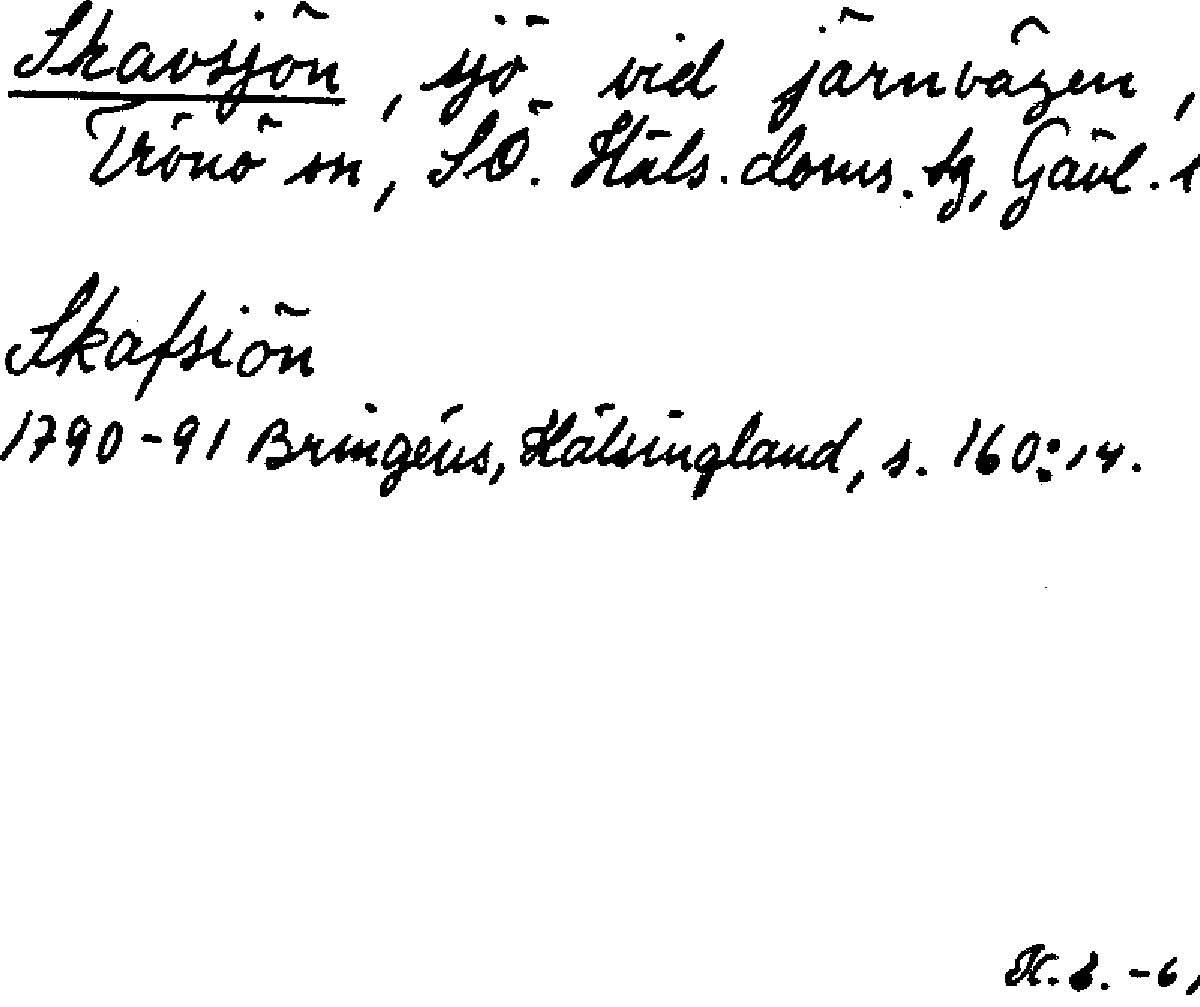 Skavsjön, sjö vid järnvägen,
Trönö sn, SÖ. Häls. doms. tg, Gävl. l
Skafsiön
1790-91 Bringéus, Hälsingland, s. 160:14.